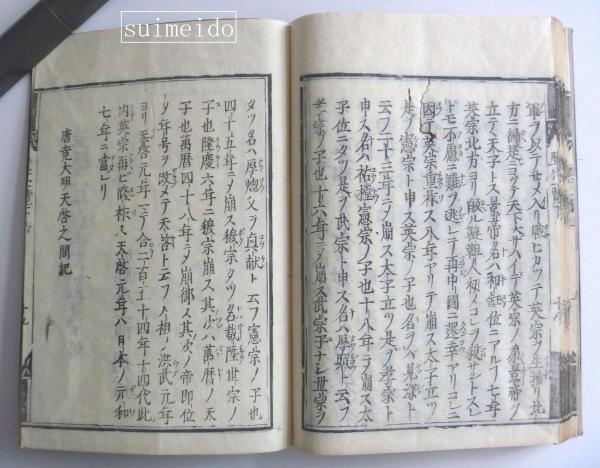 suimeido
軍ヲ以テセメ入リ戰ヒカツテ英宗ヲ生捕リ北
方ニ歸是ニヨツテ天下大サハイデ英宗ノ弟景帝ヲ
立テ天子トス景帝名ハ祁鈺位ニアルヿ七年
英宗北方ヨリ
トモ不慮ニ難ヲ逃レテ再中國ニ還幸アリコレニ
因テ英宗重祚ス八年アリテ崩ス太子立ツ
是ヲ憲宗ト申ス英宗ノ子也名ヲハ見深ト
云フ二十三年ニノ崩ス太子立ツ是ヲ孝宗ト
申ス名ハ祐樘憲宗ノ子也十八年ニノ崩ス太
子位ニタツ是ヲ武宗ト申ス名ハ厚照ト云フ
孝宗ノ子也十六年ニノ崩ス武宗子ナシ世宗ヲ
タツ名ハ厚熜父ヲ興献ト云フ憲宗ノ子也
四十五年ニノ崩ス穆宗タツ名載世宗ノ
子也隆慶六年ニ穆宗崩ス其次ハ萬曆ノ天
子也萬曆四十八年ニノ崩御ス其次ノ帝即位
メ年号ヲ改メテ天啓ト云フ大祖ノ洪武元年
ヨリ天啓元年ニ至リ合二百五十四年十四代此
内英宗再ヒ踐祚ス天啓元年ハ日本ノ元和
七年ニ當レリ
唐堯大明天啓之間記